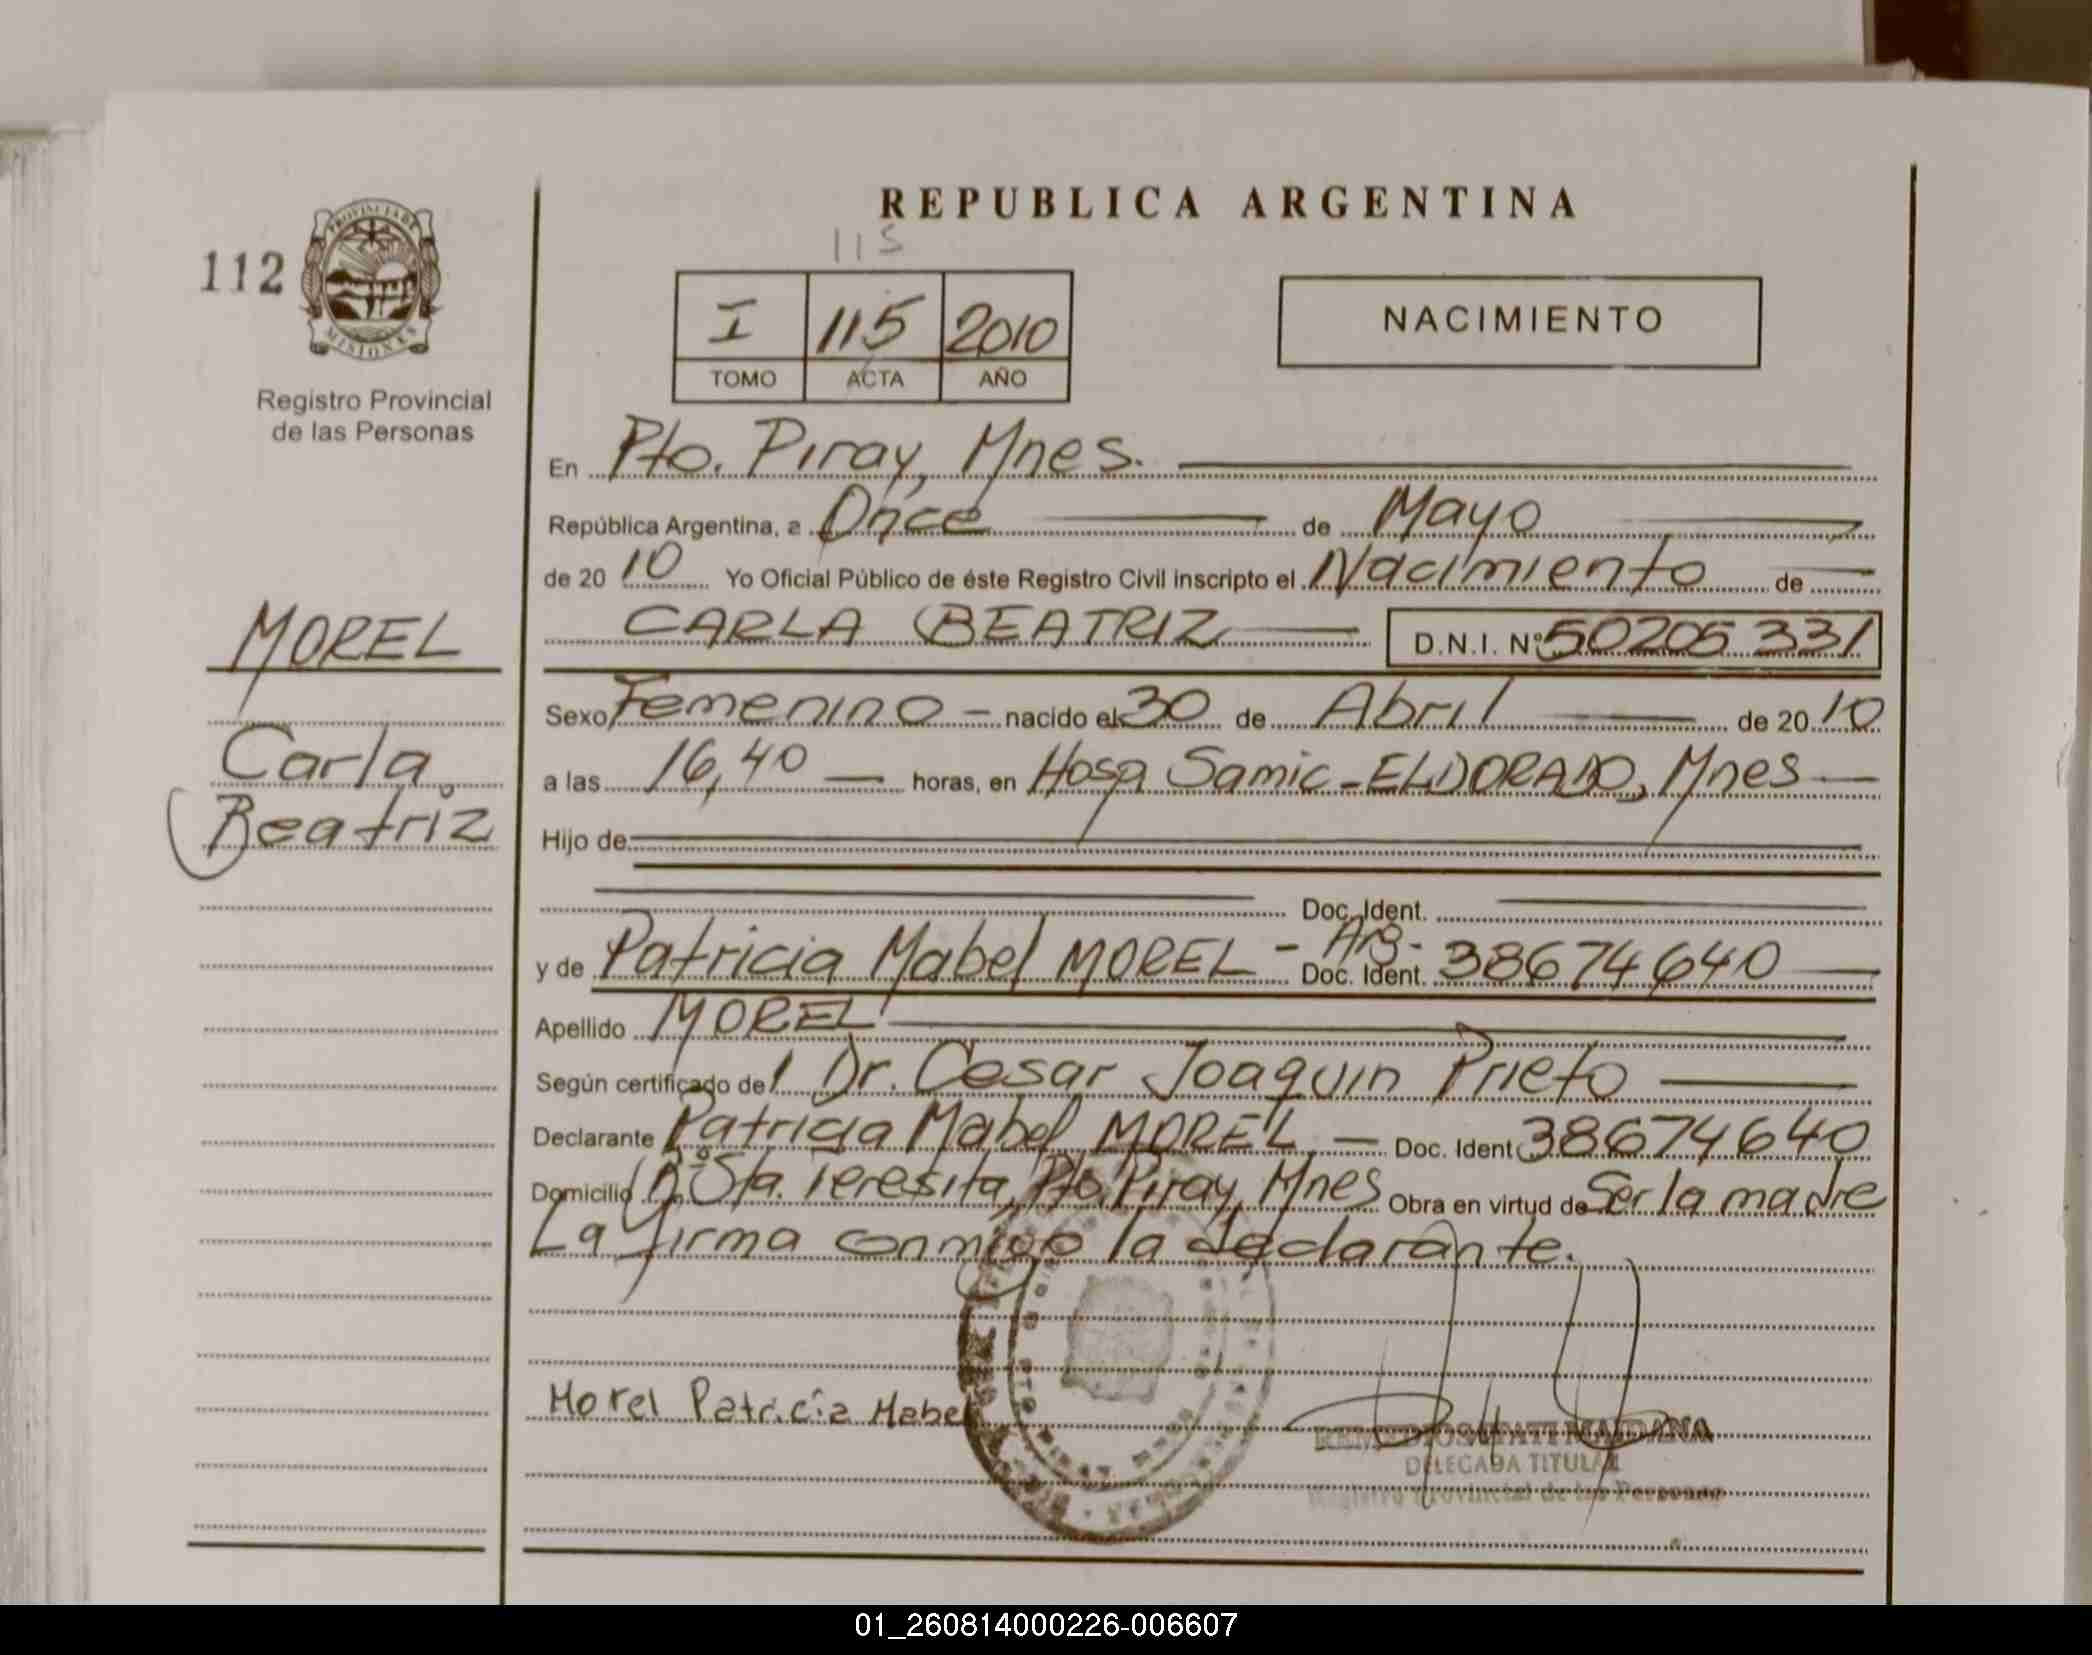 REPUBLICA ARGENTINA
115
112
PROVINCIA DE
MISIONES
Registro Provincial
de las Personas
I 115 2010
TOMO ACTA AÑO
NACIMIENTO
En Pto. Piray, Mnes.
República Argentina, a Once de Mayo
de 2010 Yo Oficial Público de éste Registro Civil inscripto el Nacimiento de
CARLA BEATRIZ D.N.I. Nº 50205331
MOREL
Carla
Beatriz
Sexo Femenino - nacido el 30 de Abril de 2010
a las 16,40 horas, en Hosp Samic - ELDORADO, Mnes
Hijo de
Doc. Ident.
y de Patricia Mabel MOREL - Arg. Doc. Ident. 38674640
Apellido MOREL
Según certificado del Dr. Cesar Joaquin Prieto
Declarante Patricia Mabel MOREL - Doc. Ident 38674640
Domicilio Bº Sta. Teresita, Pto. Piray, Mnes Obra en virtud de Ser la madre
La firma conmigo la declarante.
Morel Patricia Mabel
DELEGADA TITULAR
Registro Provincial de las Personas
01_260814000226-006607